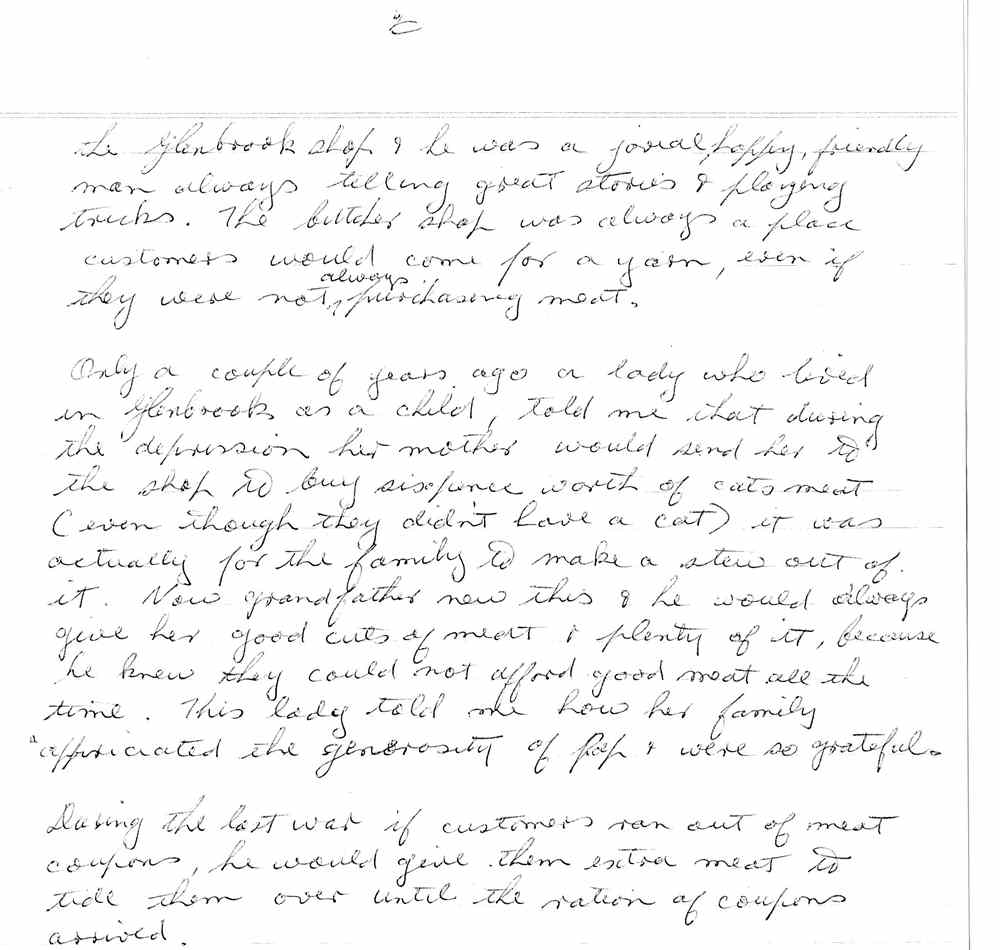 the Glenbrook shop & he was a jovial, happy, friendly
man always telling great stories & playing
tricks. The butcher shop was always a place
customers would come for a yarn, even if
they were not, always purchasing meat.
Only a couple of years ago a lady who lived
in Glenbrook as a child, told me that during
the depression her mother would send her to
the shop to buy sixpence worth of cats meat
(even though they didn't have a cat) it was
actually for the family to make a stew out of
it. Now grandfather new this & he would always
give her good cuts of meat & plenty of it, because
he knew they could not afford good meat all the
time. This lady told me how her family
appriciated the generosity of Pop & were so grateful.
During the last war if customers ran out of meat
coupons, he would give them extra meat to
tide them over until the ration of coupons
arrived.